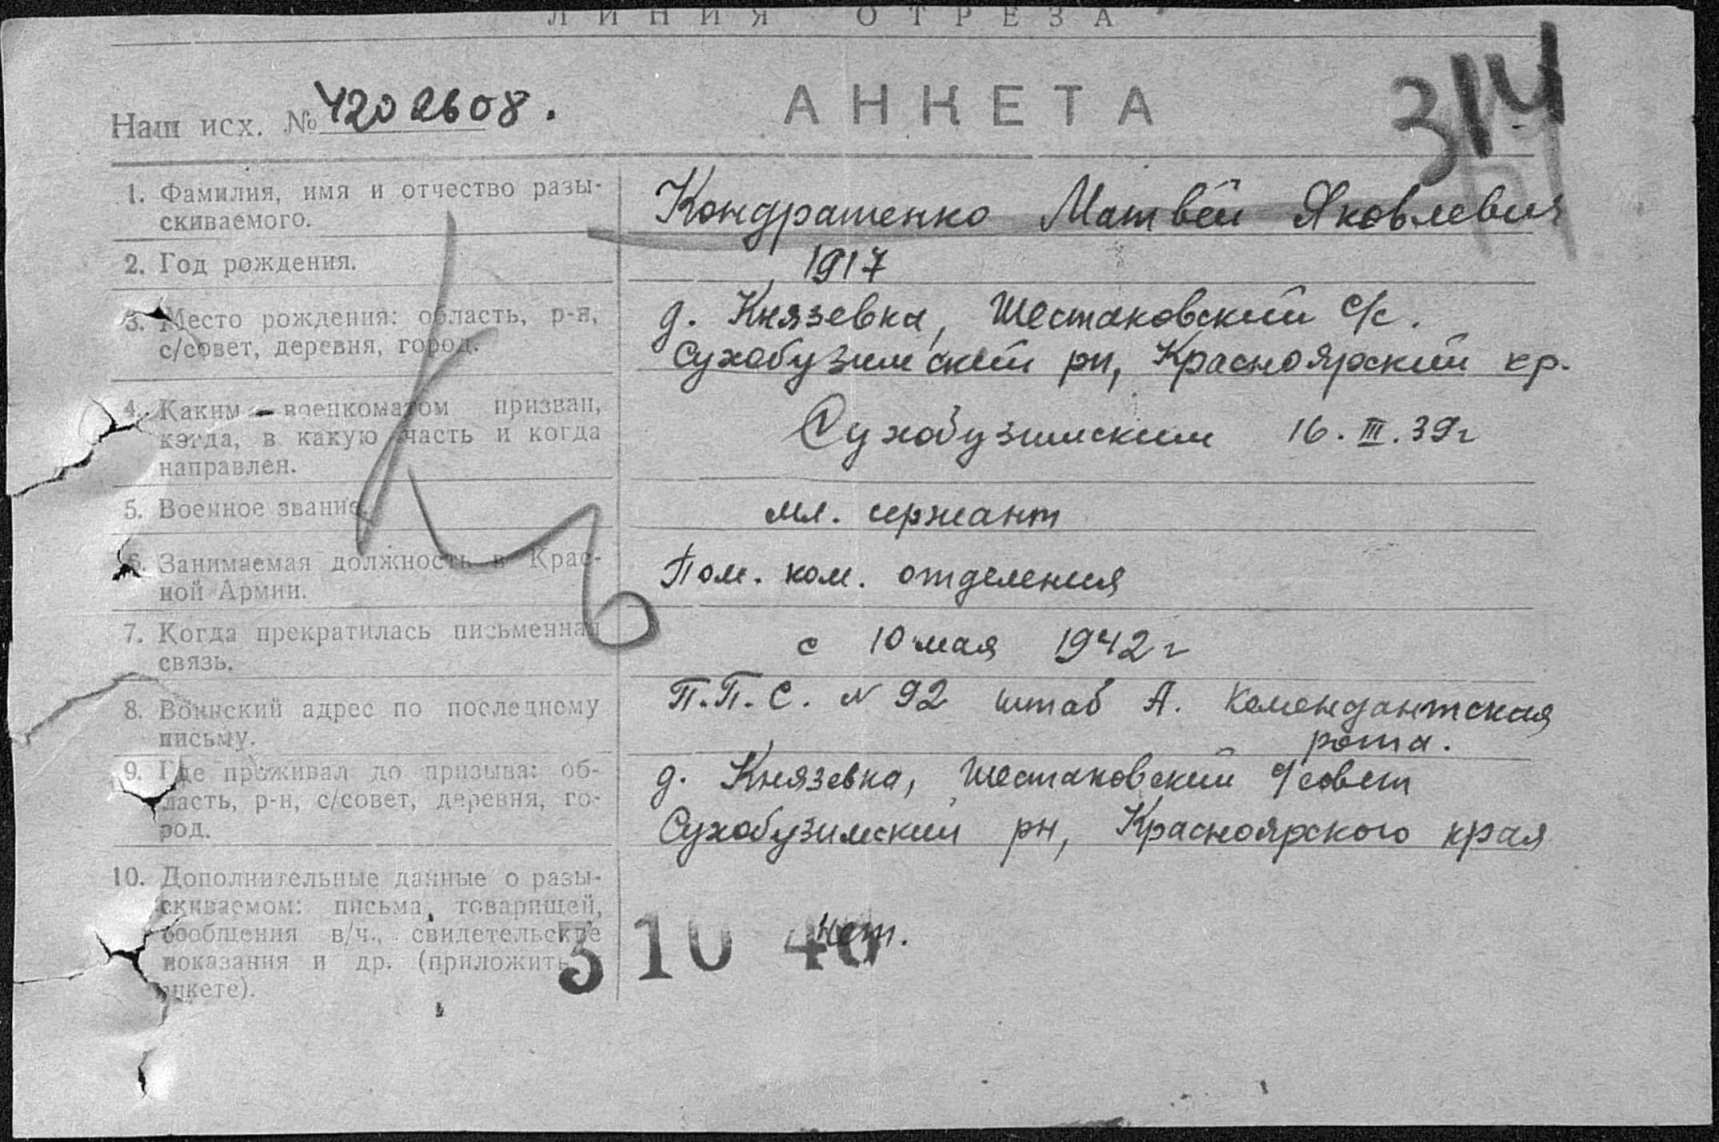 ЛИНИЯ ОТРЕЗА
Наш исх. № 4202608.
АНКЕТА
314
1. Фамилия, имя и отчество разы-
скиваемого.
Кондратенко Матвей Яковлевич
2. Год рождения.
1917
3. Место рождения: область, р-н,
с/совет, деревня, город.
д. Князевка, Шестаковский с/с.
Сухобузимский рн, Красноярский кр.
4. Каким военкоматом призван,
когда, в какую часть и когда
направлен.
Сухобузимским 16.III.39г
5. Военное звание.
мл. сержант
6. Занимаемая должность в Крас-
ной Армии.
Пом. ком. отделения
7. Когда прекратилась письменная
связь.
с 10 мая 1942 г
8. Воинский адрес по последнему
письму.
П.П.С. № 92 штаб А. Комендантская
рота.
9. Где проживал до призыва: об-
ласть, р-н, с/совет, деревня, го-
род.
д. Князевка, Шестаковский с/совет
Сухобузимский рн, Красноярского края
10. Дополнительные данные о разы-
скиваемом: письма, товарищей,
сообщения в/ч., свидетельские
показания и др. (приложить
анкете).
нет.
3 10 46